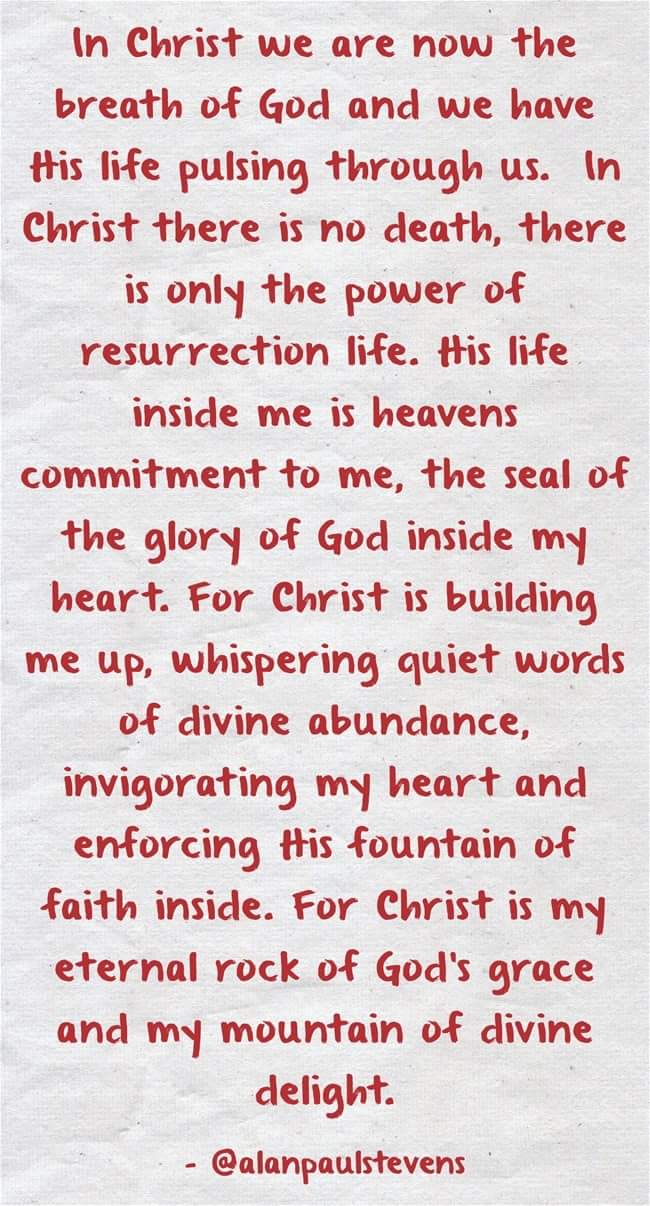 In Christ we are now the
breath of God and we have
His life pulsing through us. In
Christ there is no death, there
is only the power of
resurrection life. His life
inside me is heavens
commitment to me, the seal of
the glory of God inside my
heart. For Christ is building
me up, whispering quiet words
of divine abundance,
invigorating my heart and
enforcing His fountain of
faith inside. For Christ is my
eternal rock of God's grace
and my mountain of divine
delight.
- @alanpaulstevens